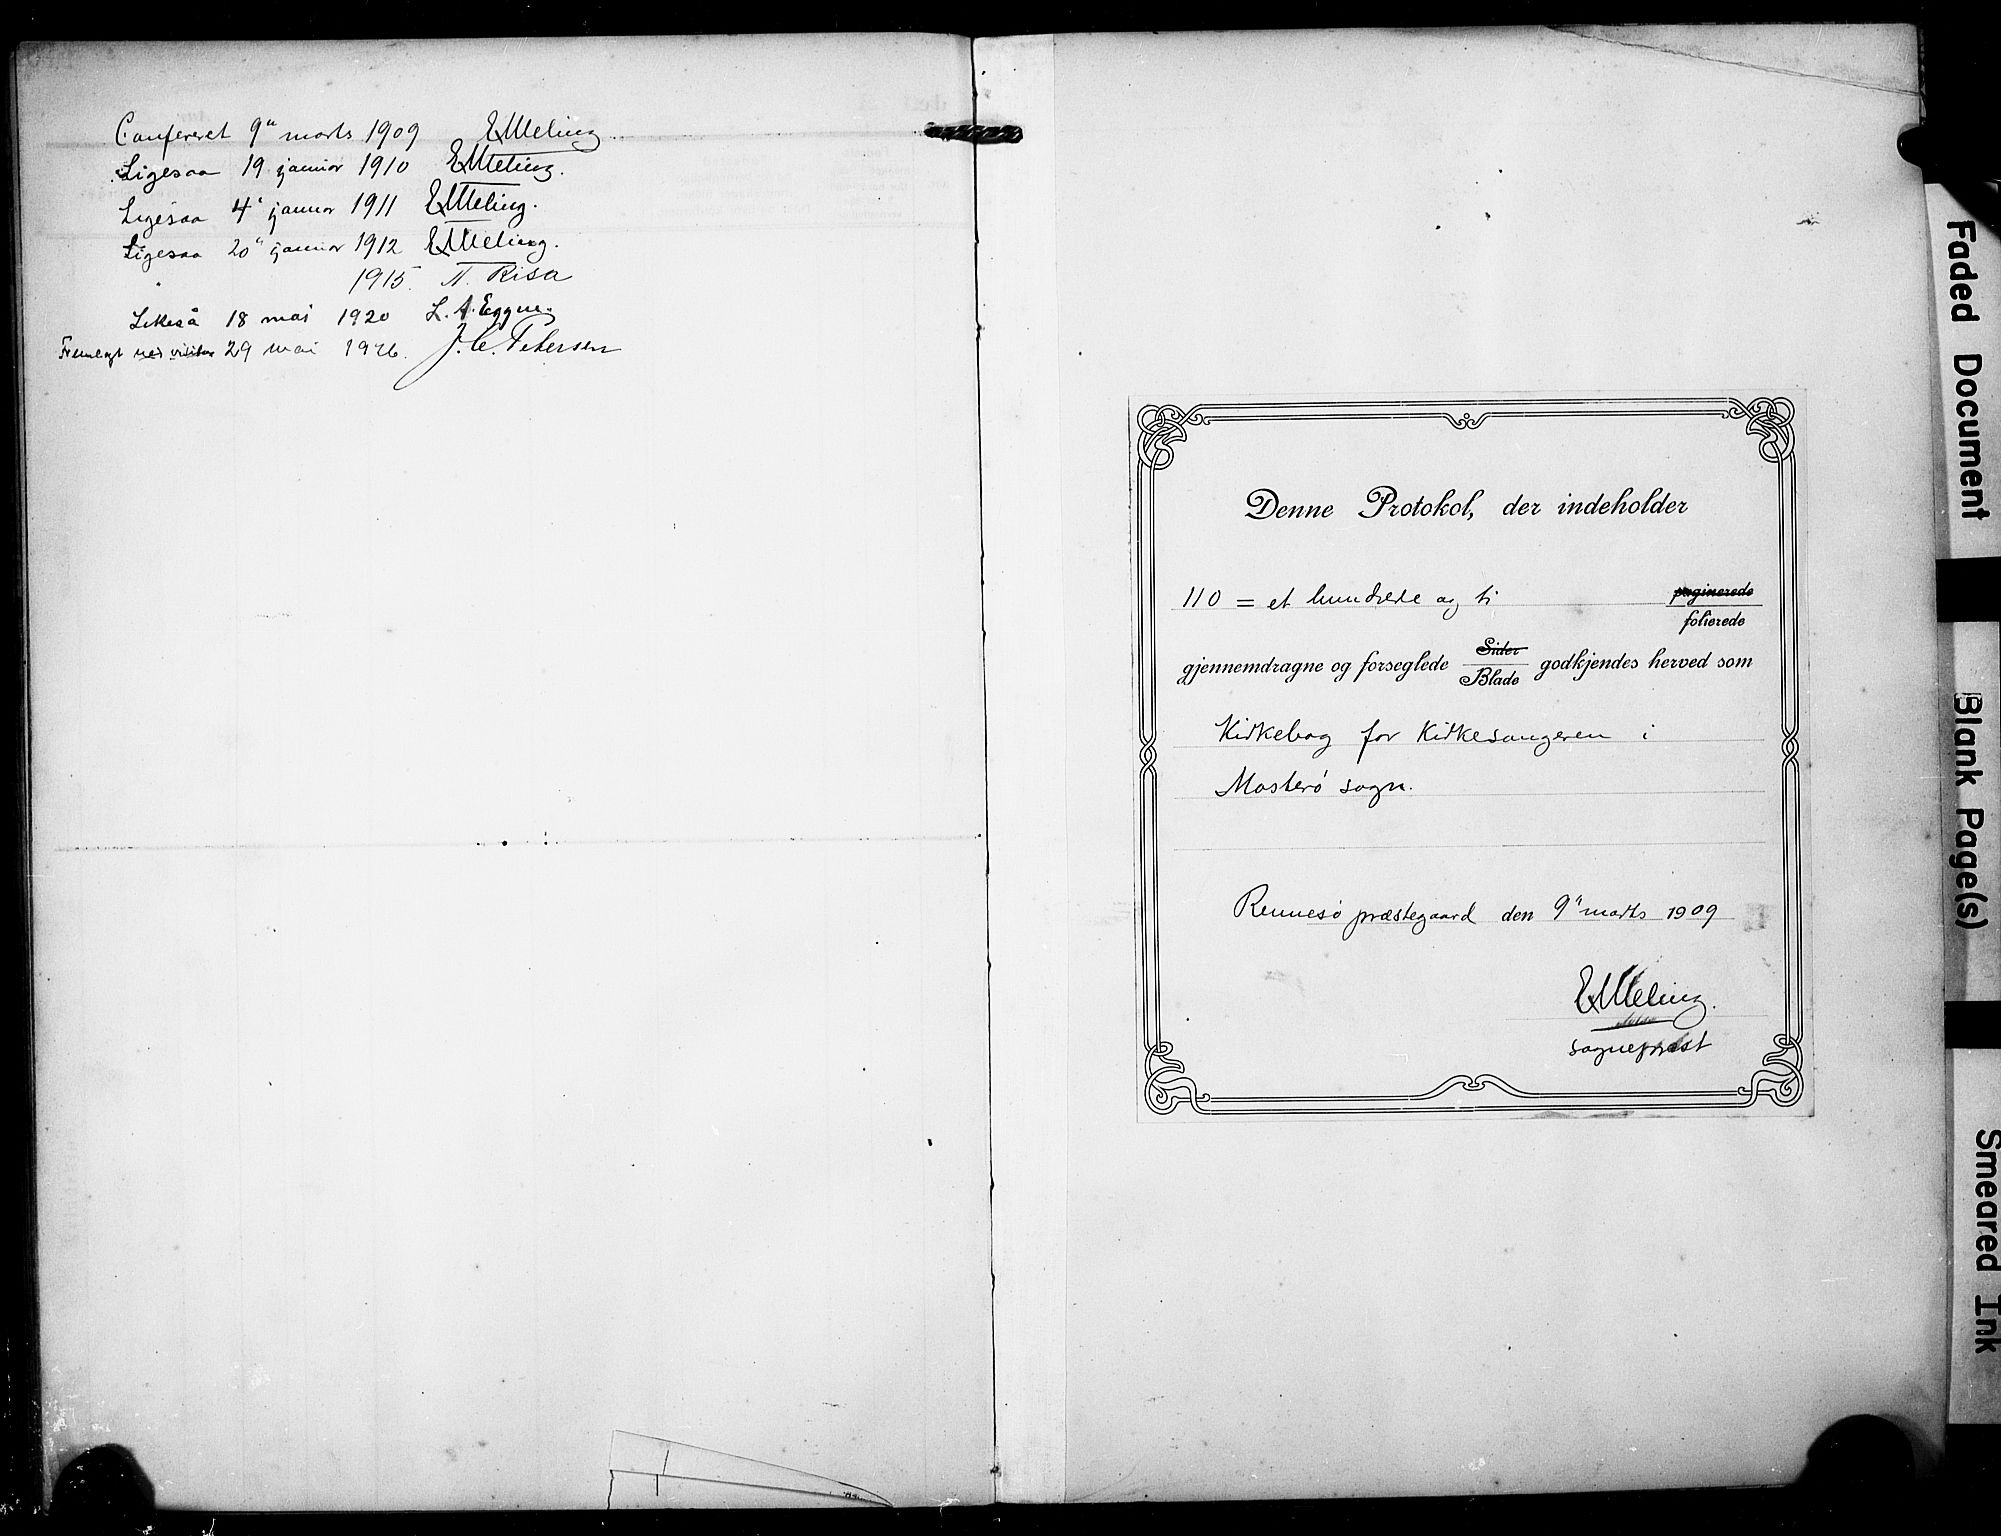 Confereret 9" marts 1909 EMMeling
Ligesaa 19 januar 1910 EMMeling.
Ligesaa 4' januar 1911 EMMeling.
Ligesaa 20" januar 1912 EMMeling.
" 1915. N. Risa
Likeså 18 mai 1920 L. A. Eggue.
Fremlagt ved visitas 29 mai 1926. J. C. Petersen
Denne Protokol, der indeholder
110 = et hundrede og ti paginerede
folierede
gjennemdragne og forseglede Sider godkjendes herved som
Blade
Kirkebog for Kirkesangeren i
Mosterö sogn.
Rennesö præstegaard den 9" marts 1909
EMMeling.
sogneprest
Faded Document
Blank Page(s)
Smeared Ink